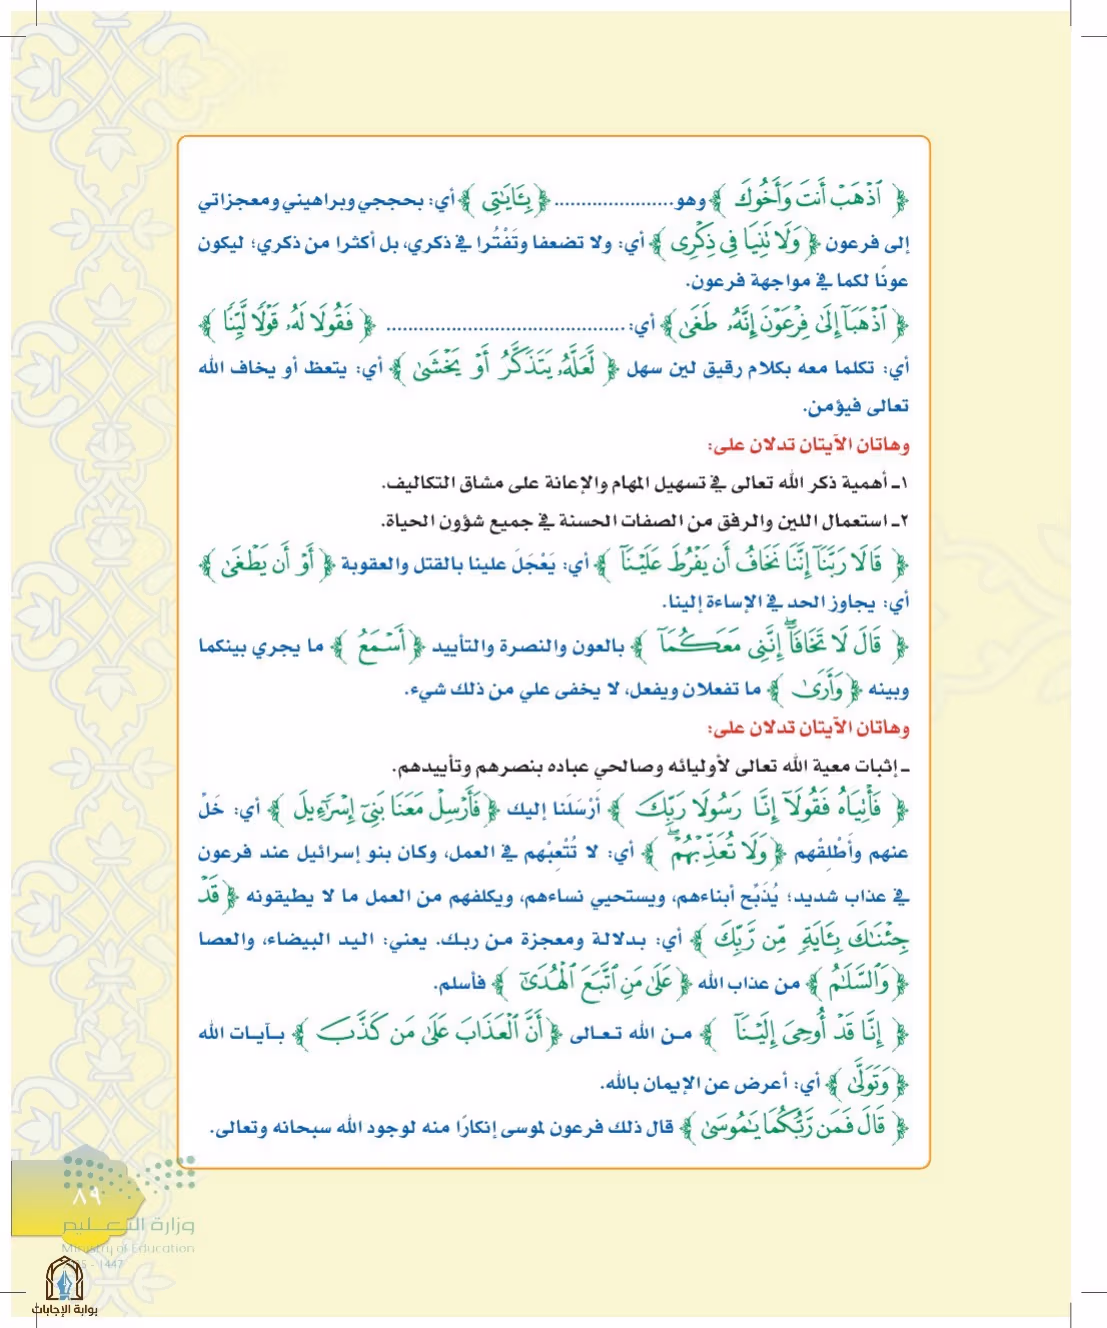 ﴿ ٱذۡهَبۡ أَنتَ وَأَخُوكَ ﴾ وهو...................... ﴿ بِـَٔايَٰتِي ﴾ أي: بحججي وبراهيني ومعجزاتي
إلى فرعون ﴿ وَلَا تَنِيَا فِي ذِكۡرِي ﴾ أي: ولا تضعفا وتَفْتُرا في ذكري، بل أكثرا من ذكري؛ ليكون
عونًا لكما في مواجهة فرعون.
﴿ ٱذۡهَبَآ إِلَىٰ فِرۡعَوۡنَ إِنَّهُۥ طَغَىٰ ﴾ أي: ............................................ ﴿ فَقُولَا لَهُۥ قَوۡلٗا لَّيِّنٗا ﴾
أي: تكلما معه بكلام رقيق لين سهل ﴿ لَّعَلَّهُۥ يَتَذَكَّرُ أَوۡ يَخۡشَىٰ ﴾ أي: يتعظ أو يخاف الله
تعالى فيؤمن.
وهاتان الآيتان تدلان على:
١ـ أهمية ذكر الله تعالى في تسهيل المهام والإعانة على مشاق التكاليف.
٢ـ استعمال اللين والرفق من الصفات الحسنة في جميع شؤون الحياة.
﴿ قَالَا رَبَّنَآ إِنَّنَا نَخَافُ أَن يَفۡرُطَ عَلَيۡنَآ ﴾ أي: يَعْجَلَ علينا بالقتل والعقوبة ﴿ أَوۡ أَن يَطۡغَىٰ ﴾
أي: يجاوز الحد في الإساءة إلينا.
﴿ قَالَ لَا تَخَافَآۖ إِنَّنِي مَعَكُمَآ ﴾ بالعون والنصرة والتأييد ﴿ أَسۡمَعُ ﴾ ما يجري بينكما
وبينه ﴿ وَأَرَىٰ ﴾ ما تفعلان ويفعل، لا يخفى علي من ذلك شيء.
وهاتان الآيتان تدلان على:
ـ إثبات معية الله تعالى لأوليائه وصالحي عباده بنصرهم وتأييدهم.
﴿ فَأۡتِيَاهُ فَقُولَآ إِنَّا رَسُولَا رَبِّكَ ﴾ أَرْسَلَنا إليك ﴿ فَأَرۡسِلۡ مَعَنَا بَنِيٓ إِسۡرَٰٓءِيلَ ﴾ أي: خَلِّ
عنهم وأَطْلِقْهم ﴿ وَلَا تُعَذِّبۡهُمۡۖ ﴾ أي: لا تُتْعِبْهم في العمل، وكان بنو إسرائيل عند فرعون
في عذاب شديد؛ يُذَبِّح أبناءهم، ويستحيي نساءهم، ويكلفهم من العمل ما لا يطيقونه ﴿ قَدۡ
جِئۡنَٰكَ بِـَٔايَةٖ مِّن رَّبِّكَ ﴾ أي: بدلالة ومعجزة من ربك. يعني: اليد البيضاء، والعصا
﴿ وَٱلسَّلَٰمُ ﴾ من عذاب الله ﴿ عَلَىٰ مَنِ ٱتَّبَعَ ٱلۡهُدَىٰٓ ﴾ فأسلم.
﴿ إِنَّا قَدۡ أُوحِيَ إِلَيۡنَآ ﴾ من الله تعالى ﴿ أَنَّ ٱلۡعَذَابَ عَلَىٰ مَن كَذَّبَ ﴾ بآيات الله
﴿ وَتَوَلَّىٰ ﴾ أي: أعرض عن الإيمان بالله.
﴿ قَالَ فَمَن رَّبُّكُمَا يَٰمُوسَىٰ ﴾ قال ذلك فرعون لموسى إنكارًا منه لوجود الله سبحانه وتعالى.
٨٩
وزارة التعليم
Ministry of Education
- 1447
بوابة الإجابات